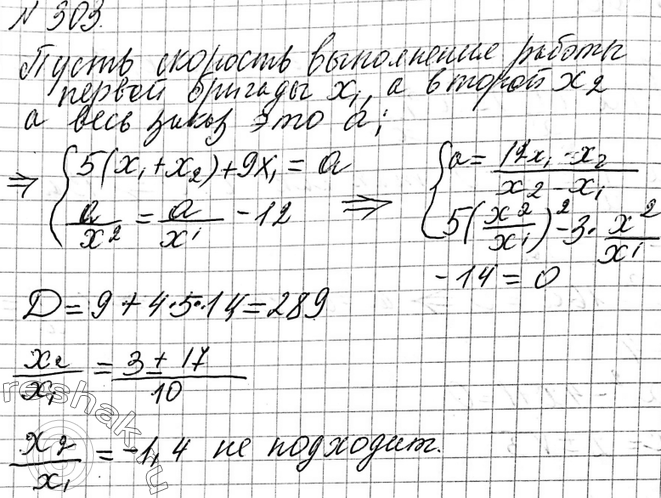 № 303.
Пусть скорость выполнение работы
первой бригады x₁, а второй x2
а весь заказ это a;
⇒ { 5(x₁+x₂)+9x₁ = a
a/x2 = a/x1 - 12
⇒ { a = 12x₁ · x₂ / x₂ - x₁
5(x2/x1)² - 3 · x2/x1
- 14 = 0
D = 9 + 4·5·14 = 289
x₂/x₁ = 3 ± 17 / 10
x2/x1 = -1,4 не подходит.
reshak.ru